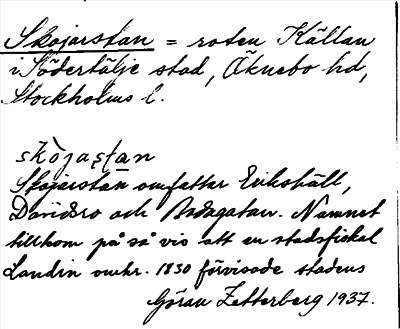 Skojarstan = roten Källan
i Södertälje stad, Öknebo hd,
Stockholms l.
skòjaṣtan
Skojarstan omfattar Erikshäll,
Davidsro och Badagatan. Namnet
tillkom på så vis att en stadsfiskal
Landin omkr. 1830 förvisade stadens
Göran Zetterberg 1937.